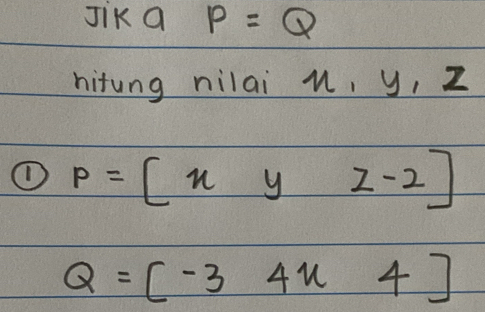 Jika P = Q
hitung nilai x, y, z
① P = [ x y z-2 ]
Q = [ -3 4x 4 ]